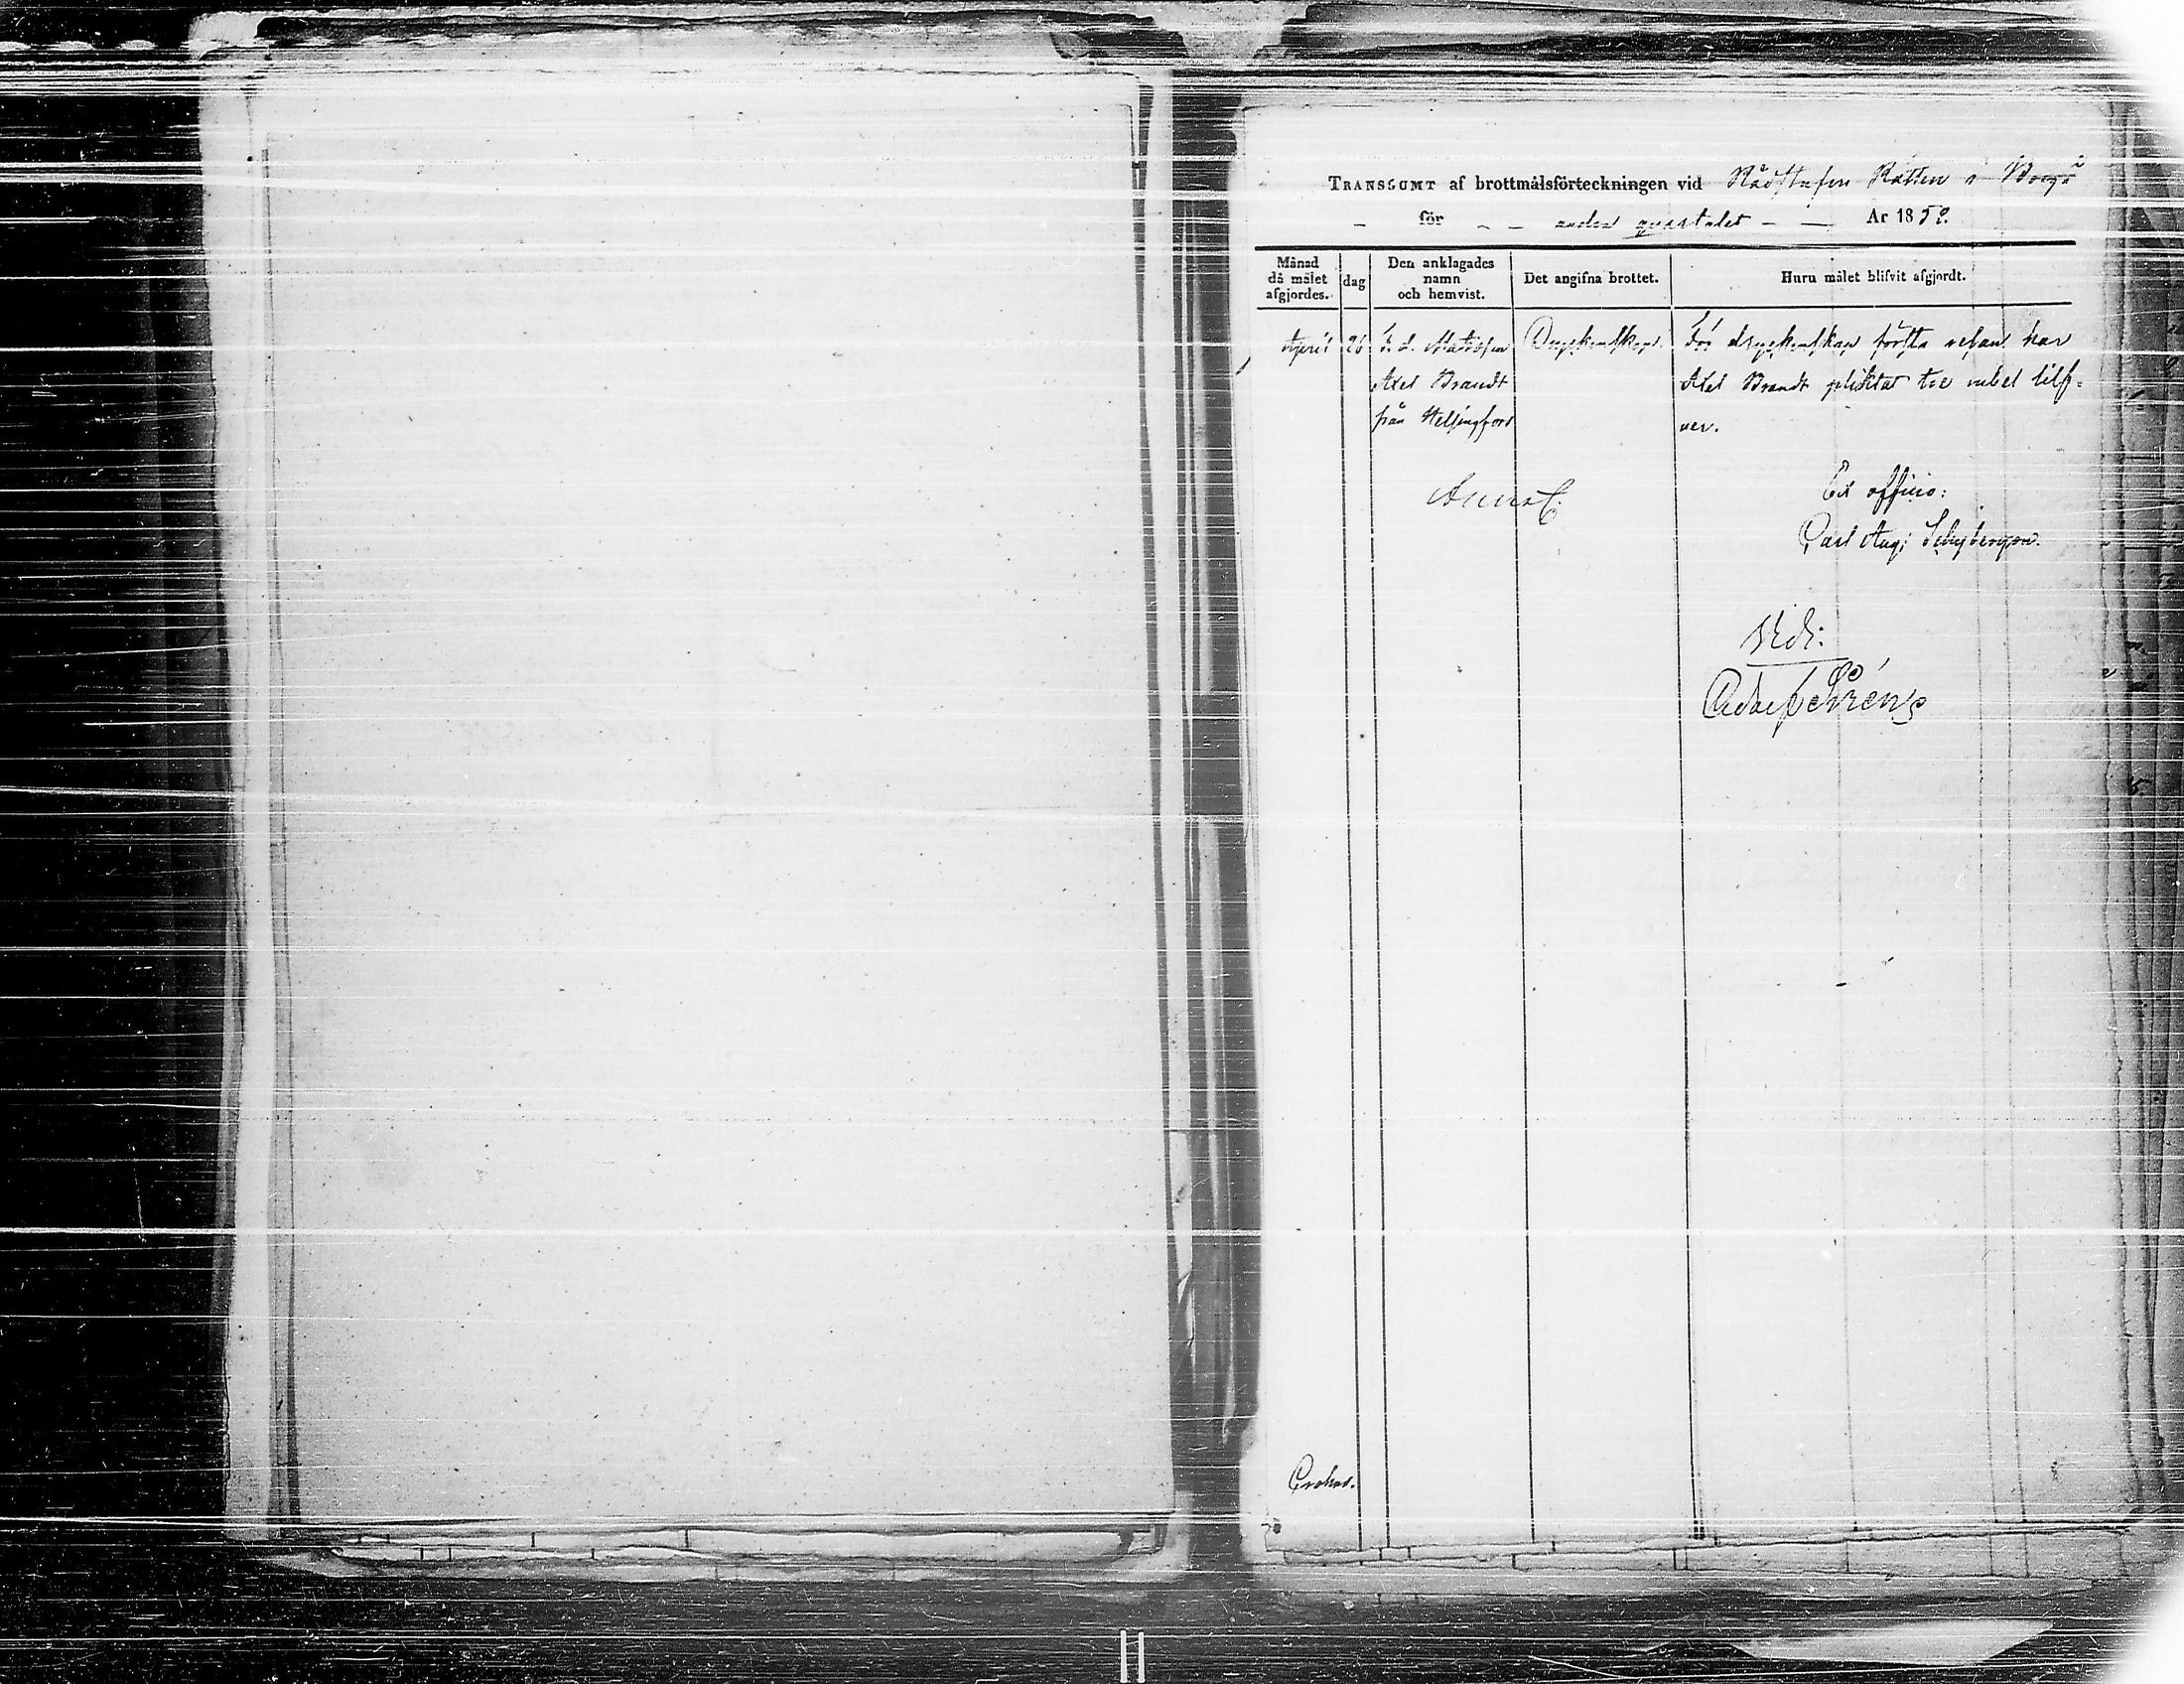 TRANSSUMT af brottmålsförteckningen vid Rådstufvu Rätten i Borgå
för andra qvartalet År 1852.
Månad då målet afgjordes.
dag
Den anklagades namn och hemvist.
Det angifna brottet.
Huru målet blifvit afgjordt.
April 26 f. d. Matrosen Dryckenskap. För dryckenskap första resan har
Axel Brandt Axel Brandt pliktat tre rubel silf-
från Helsingfors ver.
Ex officio:
Carl Aug: Schybergson.
Vidi: